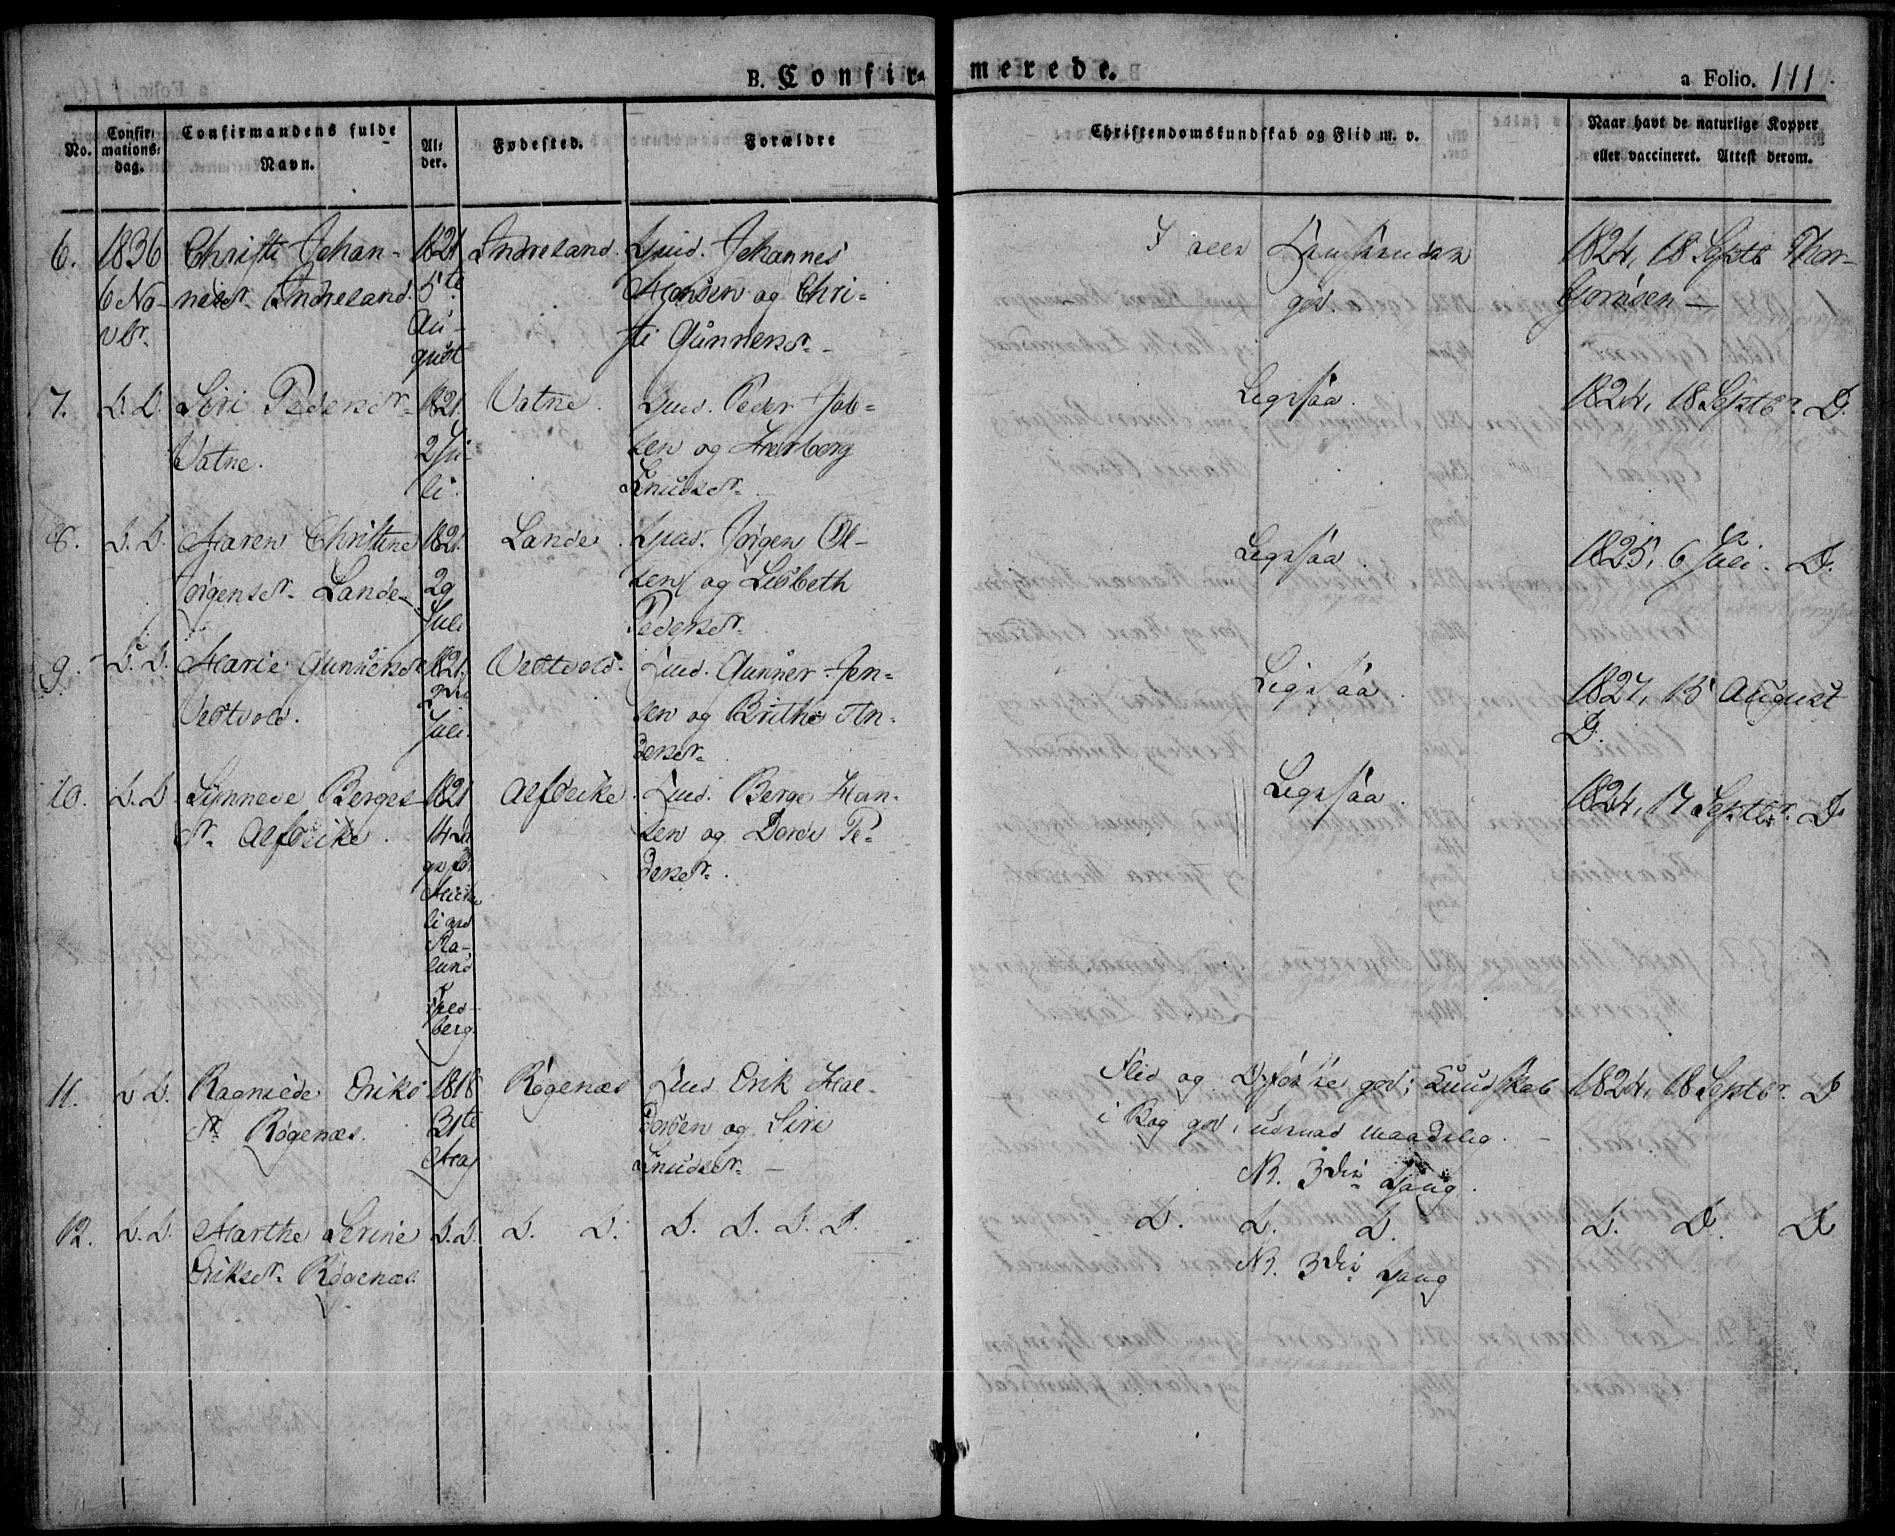 B. Confir-
merede.
a Folio. 111
No.
Confir-
mations-
dag.
Confirmandens fulde
Navn.
Al-
der.
Fødested.
Forældre
Christendomskundskab og Flid m. v.
Naar havt de naturlige Kopper
eller vaccineret. Attest derom.
6.
1836
6 No-
vbr.
Christi Johan-
nesdr. Indreland.
1821
5te
Au-
gust
Indreland.
Gmd. Johannes
og Chri-
sti Gunnersdr.
I alle
god.
1824, 18 Septb. Thor-
Gjornsen
7.
D. D.
Siri Pedersdr.
Vatne.
1821.
2 Ju-
li.
Vatne.
Gmd. Peder Jab-
sen og Herborg
Knudsdr.
Ligesaa.
1824, 18 Septbr. D.
8.
D. D.
Maren Christine
Jørgensdr. Lande
1821.
29
Juli
Lande.
Gmd. Jørgen Ol-
sen og Lisbeth
Pedersdr.
Ligesaa.
1825, 6 Juli. D.
9.
D. D.
Marie Gunnersdr.
Vestvold.
1821.
2den
Juli.
Vestvold.
Gmd. Gunner Jen-
sen og Brithe An-
dersdr.
Ligesaa.
1827, 15 August
D.
10.
D. D.
Berges-
dr.
1821
Gmd. Berge Han-
sen og Dordi Pe-
dersdr.
Ligesaa.
1824, 17 Septbr. D.
11.
D. D.
Eriks
dr. Røgenæs.
1818
31te
Maj
Røgenæs
Gmd. Erik Hal-
vorsen og Siri
Knudsdr.
Flid og Opførsel god; Kundskab
i Bog god, udenad maadelig.
NB. 3die Gang.
1824, 18 Septbr. D.
12.
D. D.
Marthe Serine
Eriksdr. Røgenæs.
D. D.
D. D.
D. D. D. D.
D. D. D.
NB. 3die Gang
D. D. D.